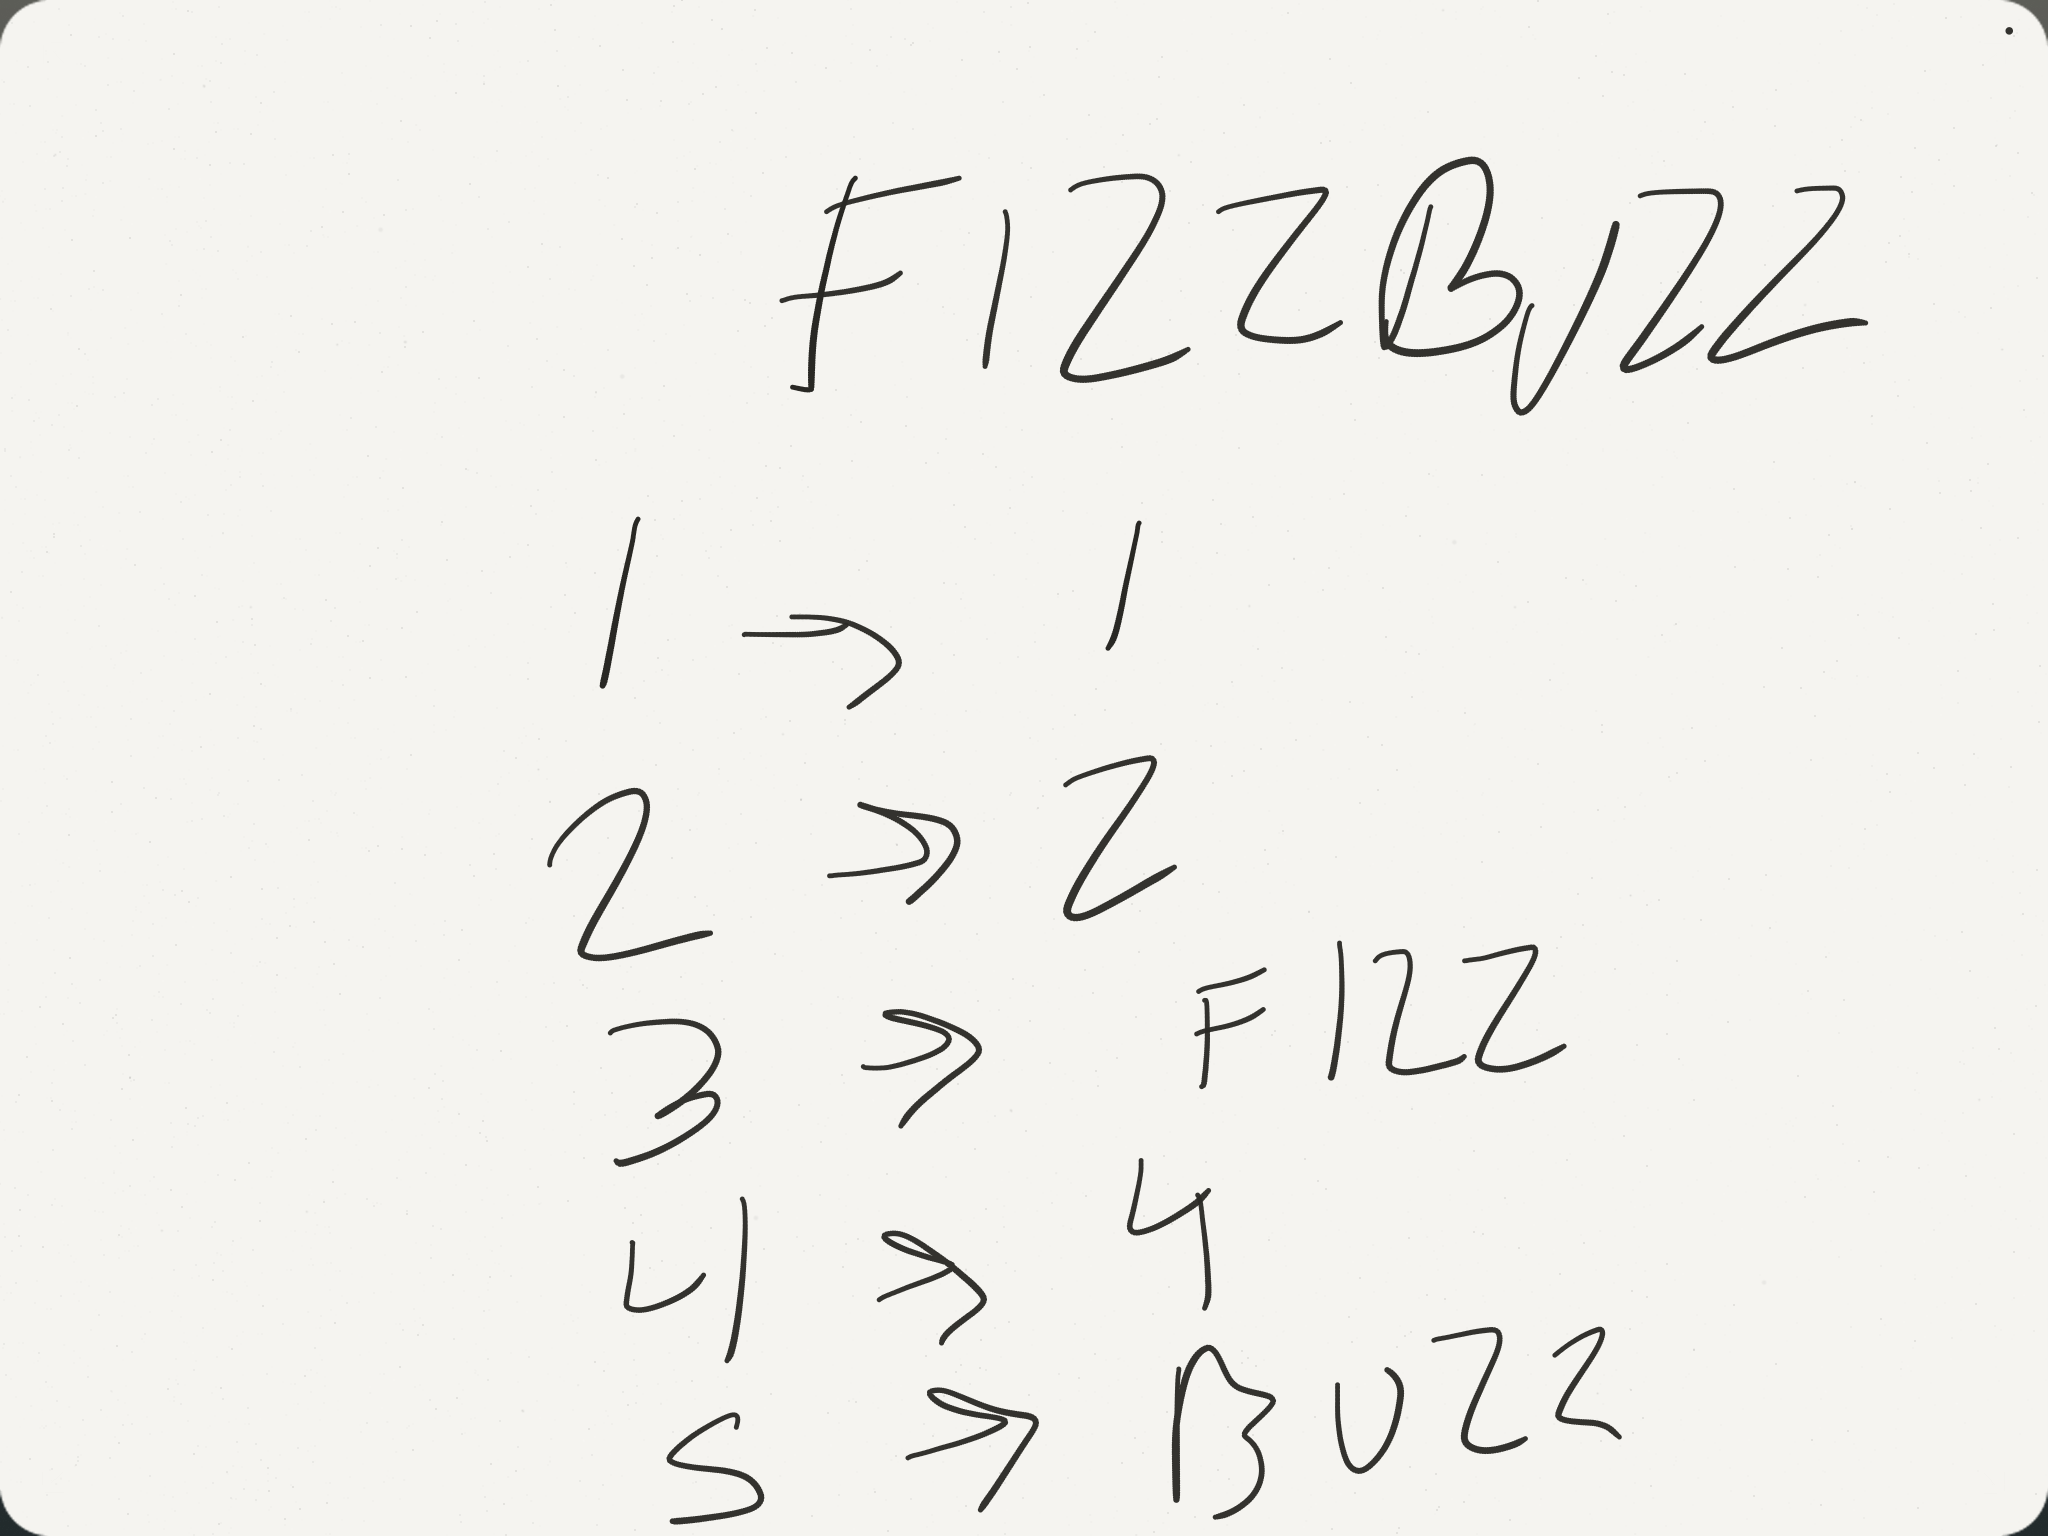 FIZZBUZZ
1 → 1
2 → 2
3 → FIZZ
4 → 4
5 → BUZZ